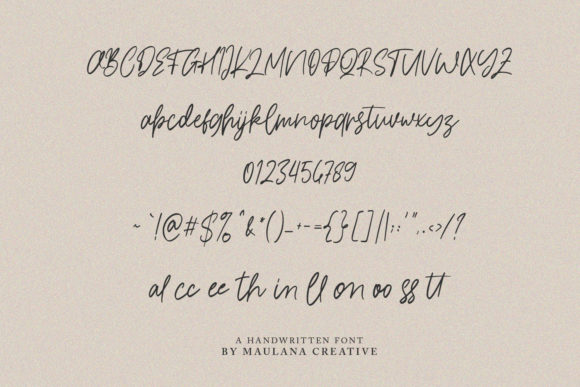 ABCDEFGHIJKLMNOPQRSTUVWXYZ
abcdefghijklmnopqrstuvwxyz
0123456789
~`!@#$%^&*()_+-={}[]\|;:'",.<>/?
al cc ee th in ll on oo ss tt
A HANDWRITTEN FONT
BY MAULANA CREATIVE